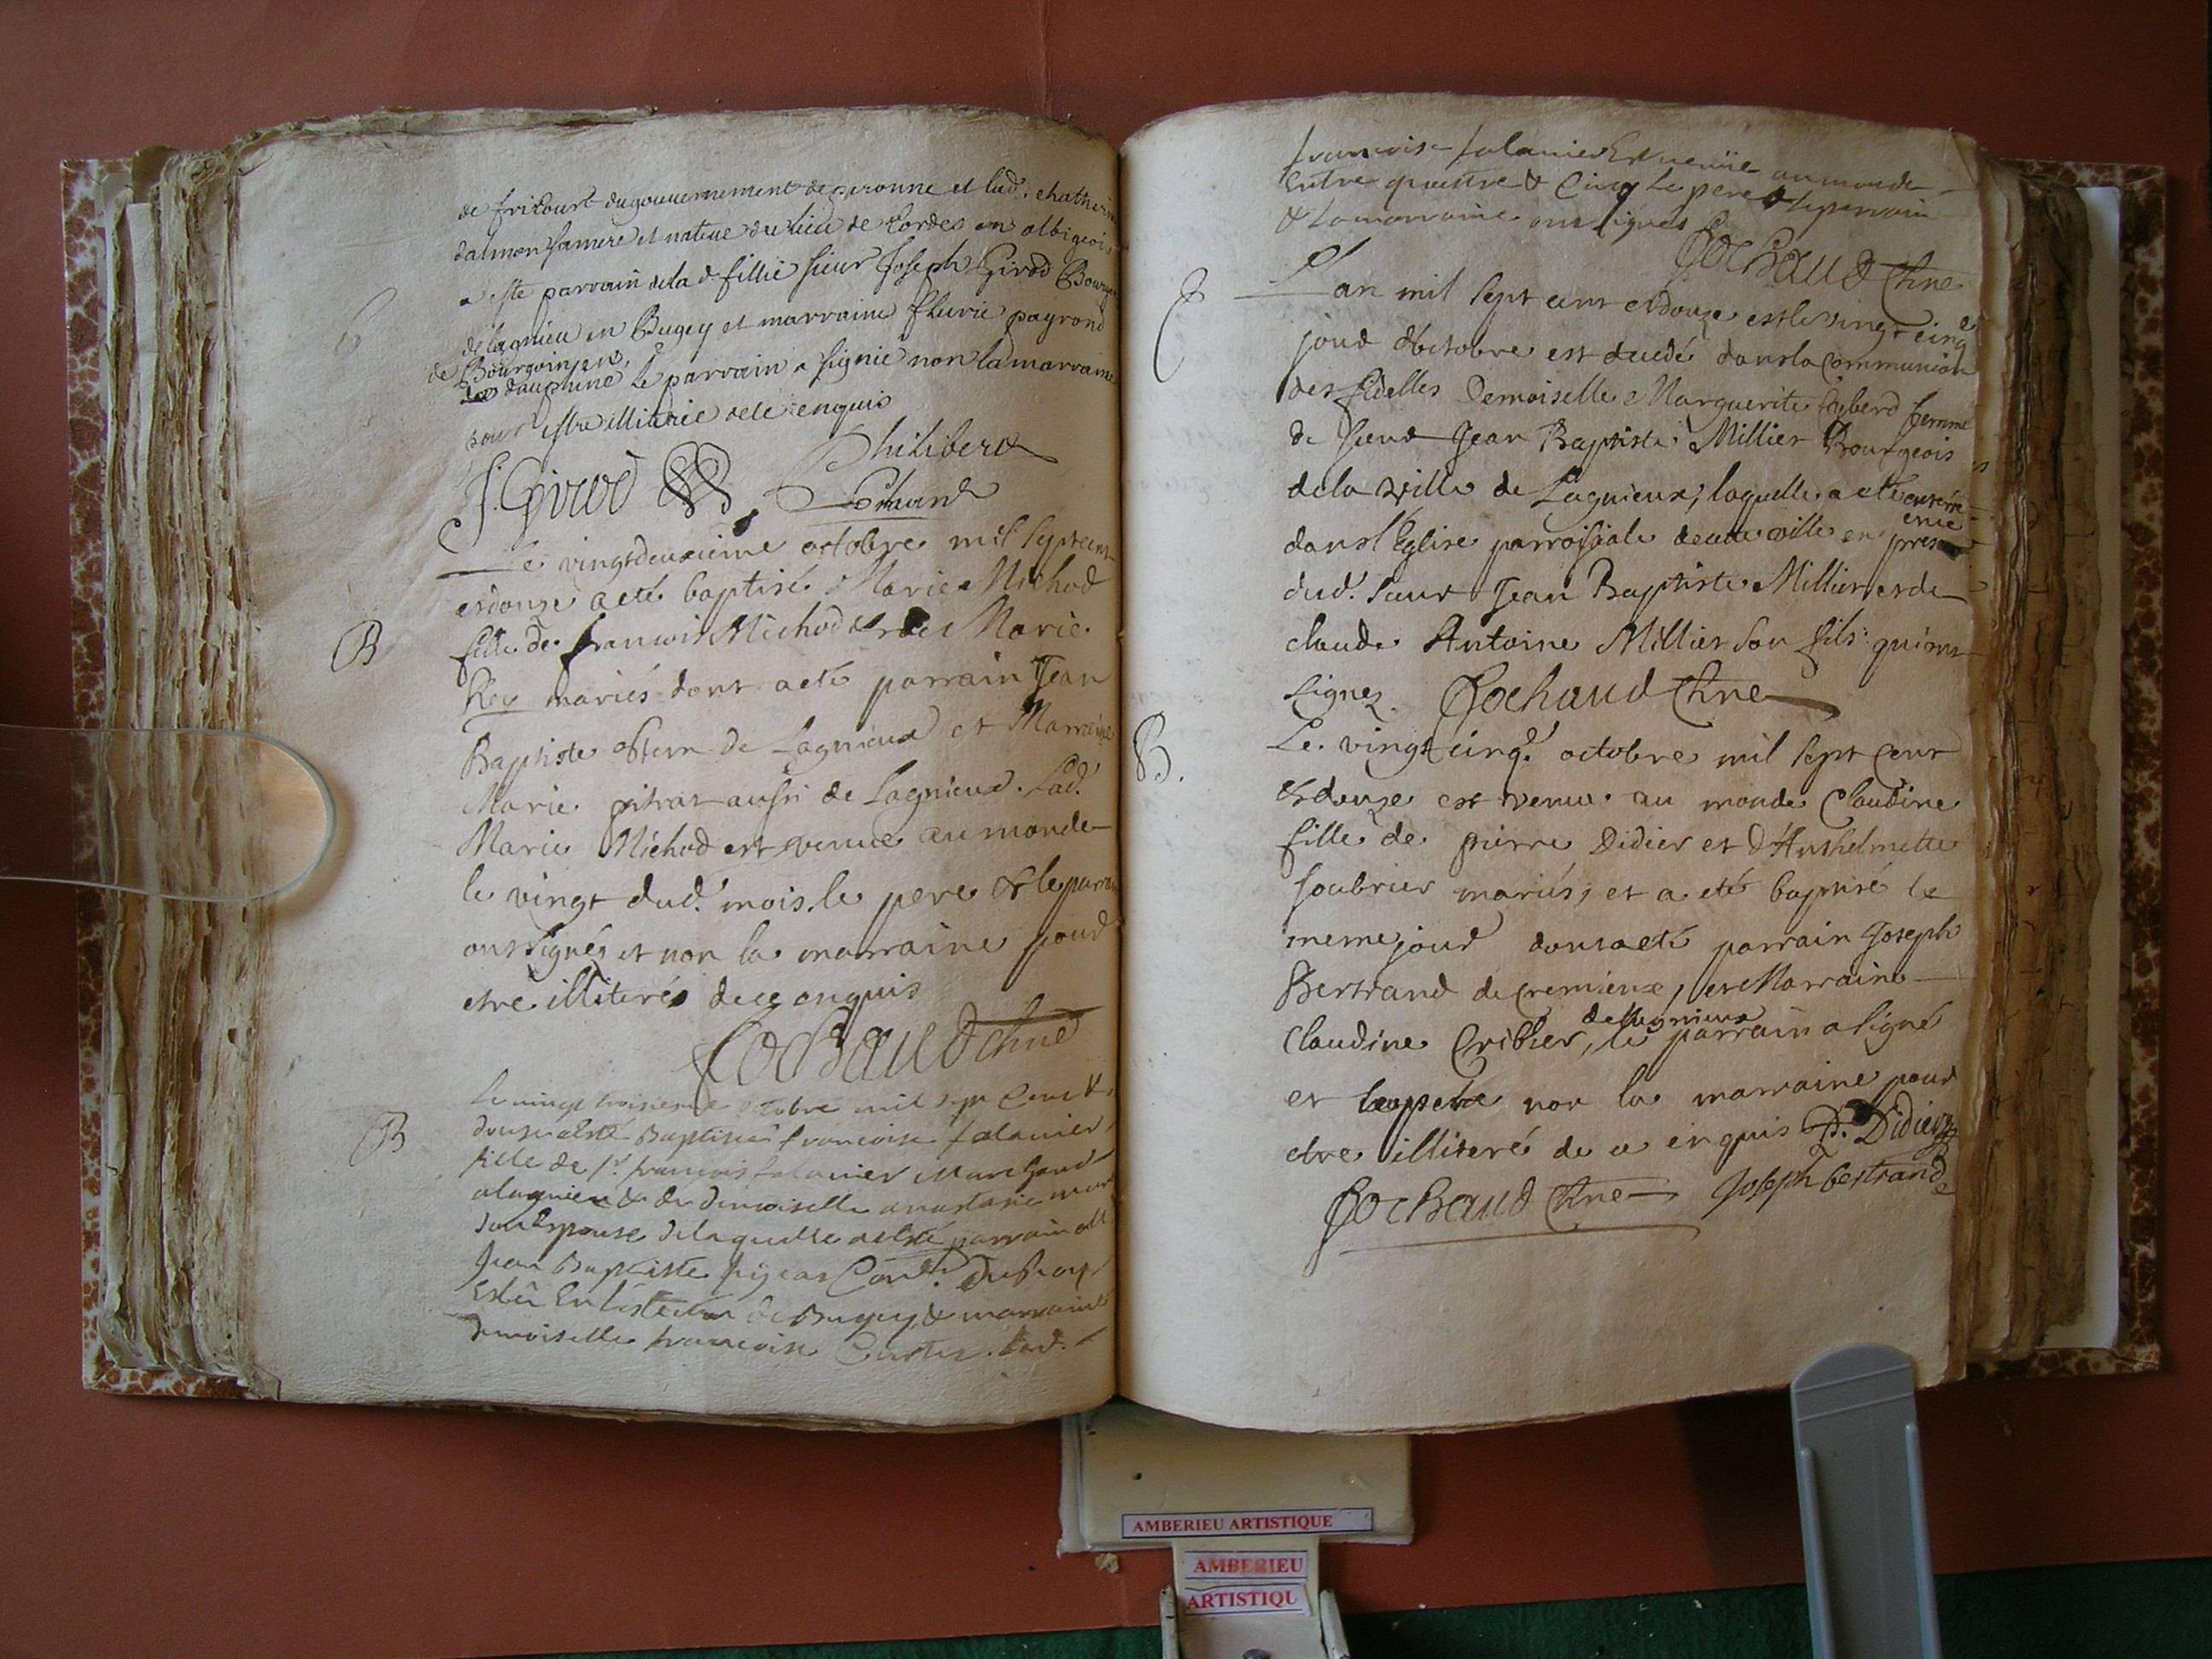 de fricourt du gouuernement de peronne et lad. chatherin
dalmon sa mere et natiue du lieu de Cordes en albigeois
a esté parrain de la d fillie sieur Joseph Girod Bourge
de lagnieu en Bugey et marraine fleurie payrond
de Bourgoin en
dauphiné, le parrain a signié non la marraine
pour estre illiterie de ce enquis
J. Girod Philibert
Le vingtdeuxieme octobre mil sept cent
et douze a eté baptisé Marie Michod
B
fille de francois Michod et de Marie
Rey mariés dont a eté parrain Jean
Baptiste de Lagnieux et Marraine
Marie pitrat aussi de Lagnieux. Lad.
Marie Michod est venue au monde
le vingt dud. mois, le pere & le parra
ont signés et non la marraine pour
etre illiteré de ce enquis
Cochaud Chne
Le vingt troisieme octobre mil sept Cent &
B
douse a esté Baptisée francoise falanier
fille de sr. francois falanier Marchand
a lagnieu & de demoiselle anastasie
son Espouse de laquelle a esté parrain
Jean Baptiste
Eslû En l'election de Bugey, & marraine
demoiselle francoise Lad.
francoise falanier Est venüe au monde
Entre quattre & Cinq Le pere & le parrain
& la marraine ont signés
Cochaud Chne
L'an mil sept cent et douze et le vingt cinq
jour d'octobre est decedé dans la Communion
des fidelles Demoiselle Marguerite femme
de sieur Jean Baptiste Millier Bourgeois
de la ville de Lagnieux, laquelle a eté enterré
dans l'Eglise parroissiale de cette ville en presence
dud. sieur Jean Baptiste Millier et de
claude Antoine Millier son fils qui ont
signez. Cochaud Chne
B.
Le vingt cinq. octobre mil sept cent
& douze est venue au monde Claudine
fille de pierre Didier et d'Anthelmette
soubrier mariés, et a eté baptisé le
meme jour dont a eté parrain Joseph
Bertrand de Cremieux, et Marraine
Claudine Cribier, de Lagnieux le parrain a signé
et le pere non la marraine pour
etre illiteré de ce enquis P. Didier
Cochaud Chne Joseph bertrand
AMBERIEU ARTISTIQUE
AMBERIEU
ARTISTIQU